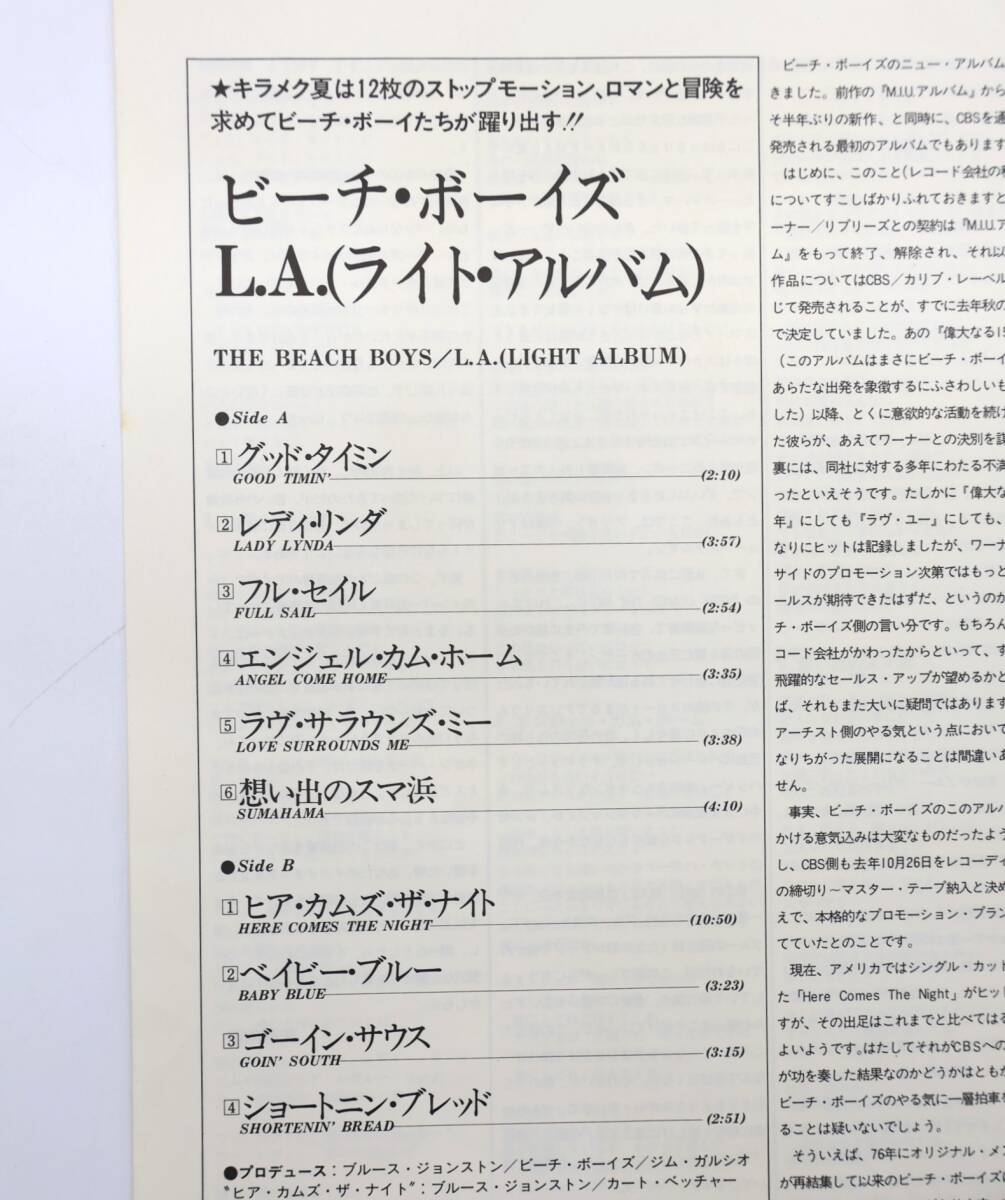 ★キラメク夏は12枚のストップモーション、ロマンと冒険を
求めてビーチ・ボーイたちが躍り出す!!
ビーチ・ボーイズ
L.A.(ライト・アルバム)
THE BEACH BOYS/L.A.(LIGHT ALBUM)
●Side A
1 グッド・タイミン
GOOD TIMIN' (2:10)
2 レディ・リンダ
LADY LYNDA (3:57)
3 フル・セイル
FULL SAIL (2:54)
4 エンジェル・カム・ホーム
ANGEL COME HOME (3:35)
5 ラヴ・サラウンズ・ミー
LOVE SURROUNDS ME (3:38)
6 想い出のスマ浜
SUMAHAMA (4:10)
●Side B
1 ヒア・カムズ・ザ・ナイト
HERE COMES THE NIGHT (10:50)
2 ベイビー・ブルー
BABY BLUE (3:23)
3 ゴーイン・サウス
GOIN' SOUTH (3:15)
4 ショートニン・ブレッド
SHORTENIN' BREAD (2:51)
●プロデュース：ブルース・ジョンストン/ビーチ・ボーイズ/ジム・ガルシオ
"ヒア・カムズ・ザ・ナイト"：ブルース・ジョンストン/カート・ベッチャー
ビーチ・ボーイズのニュー・アルバム
きました。前作の『M.I.U.アルバム』から
そ半年ぶりの新作、と同時に、CBSを通
発売される最初のアルバムでもあります
はじめに、このこと(レコード会社の移
についてすこしばかりふれておきますと
ーナー/リプリーズとの契約は『M.I.U.ア
ム』をもって終了、解除され、それ以
作品についてはCBS/カリブ・レーベル
じて発売されることが、すでに去年秋の
で決定していました。あの『偉大なる15
(このアルバムはまさにビーチ・ボーイ
あらたな出発を象徴するにふさわしいも
した)以降、とくに意欲的な活動を続け
た彼らが、あえてワーナーとの決別を謀
裏には、同社に対する多年にわたる不満
ったといえそうです。たしかに『偉大な
年』にしても『ラヴ・ユー』にしても、
なりにヒットは記録しましたが、ワーナ
サイドのプロモーション次第ではもっと
ールスが期待できたはずだ、というのか
チ・ボーイズ側の言い分です。もちろん
コード会社がかわったからといって、す
飛躍的なセールス・アップが望めるかと
ば、それもまた大いに疑問ではあります
アーチスト側のやる気という点において
なりちがった展開になることは間違いあ
せん。
事実、ビーチ・ボーイズのこのアルバ
かける意気込みは大変なものだったよう
し、CBS側も去年10月26日をレコーディ
の締切り～マスター・テープ納入と決め
えで、本格的なプロモーション・プラン
てていたとのことです。
現在、アメリカではシングル・カット
た「Here Comes The Night」がヒット
すが、その出足はこれまでと比べてはる
よいようです。はたしてそれがCBSへの
が功を奏した結果なのかどうかはともか
ビーチ・ボーイズのやる気に一層拍車を
ることは疑いないでしょう。
そういえば、76年にオリジナル・メン
が再結集して以来のビーチ・ボーイズは